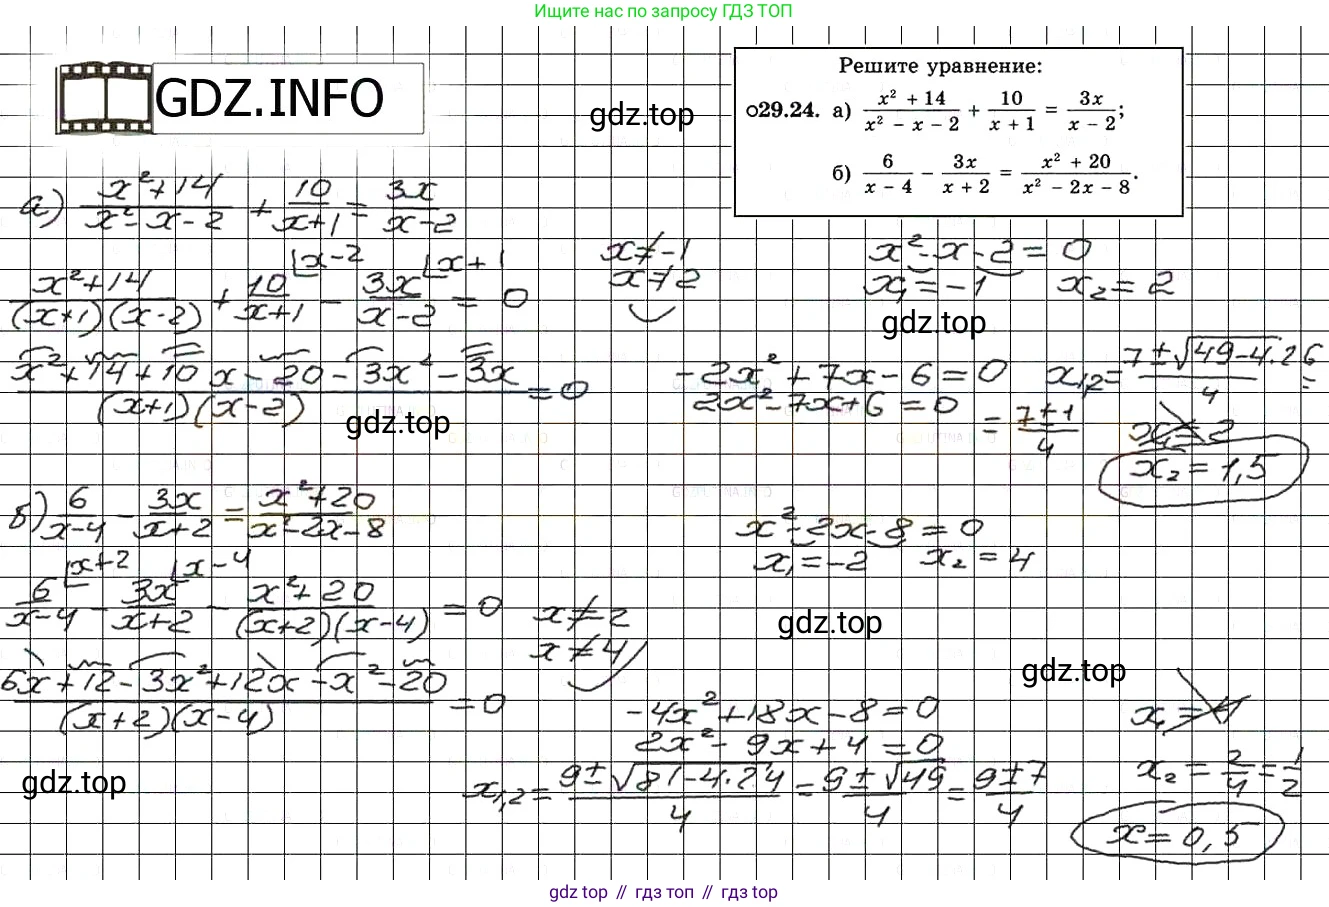 Ищите нас по запросу ГДЗ ТОП
GDZ.INFO
gdz.top
Решите уравнение:
о29.24. а) (x² + 14)/(x² − x − 2) + 10/(x + 1) = 3x/(x − 2);
б) 6/(x − 4) − 3x/(x + 2) = (x² + 20)/(x² − 2x − 8).
а) (x²+14)/(x²-x-2) + 10/(x+1) = 3x/(x-2)
(x²+14)/((x+1)(x-2)) + 10/(x+1) |x-2 − 3x/(x-2) |x+1 = 0
x≠-1
x≠2
x²-x-2=0
x₁=-1 x₂=2
gdz.top
(x²+14+10x-20-3x²-3x)/((x+1)(x-2)) = 0
gdz.top
-2x²+7x-6=0
2x²-7x+6=0
x₁,₂= (7±√(49-4·2·6))/4 =
= (7±1)/4
x₁=2
x₂=1,5
б) 6/(x-4) − 3x/(x+2) = (x²+20)/(x²-2x-8)
x²-2x-8=0
x₁=-2 x₂=4
6/(x-4) |x+2 − 3x/(x+2) |x-4 − (x²+20)/((x+2)(x-4)) = 0
x≠-2
x≠4
gdz.top
gdz.top
(6x+12-3x²+12x-x²-20)/((x+2)(x-4)) = 0
-4x²+18x-8=0
2x²-9x+4=0
x₁,₂= (9±√(81-4·2·4))/4 = (9±√49)/4 = (9±7)/4
x₁=4
x₂= 2/4 = 1/2
x=0,5
gdz.top
gdz top // гдз топ // гдз top